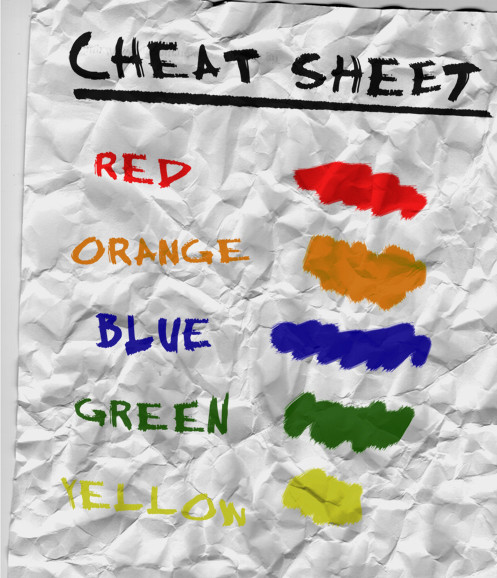 CHEAT SHEET
RED
ORANGE
BLUE
GREEN
YELLOW